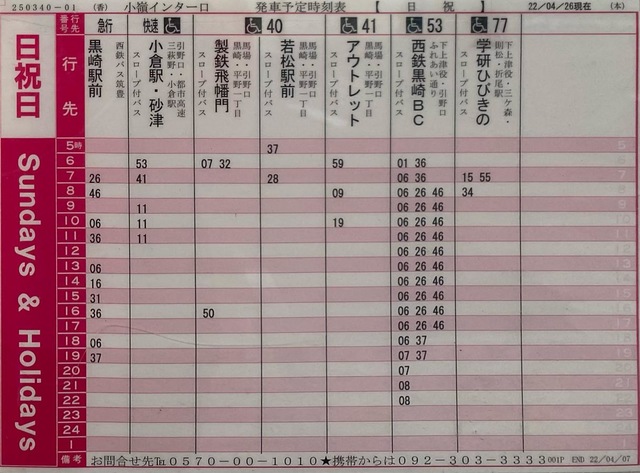 250340-01 (香) 小嶺インターロ 発車予定時刻表 【 日 祝 】 22/04/26現在 (木)
日祝日
Sundays & Holidays
番号 行先 急行 快速 40 41 53 77
行先
黒崎駅前 西鉄バス筑豊
小倉駅・砂津 引野口・都市高速 三萩野・小倉駅 スロープ付バス
製鉄飛幡門 馬場・引野口 黒崎・平野一丁目 スロープ付バス
若松駅前 馬場・引野口 黒崎・平野一丁目 スロープ付バス
アウトレット 馬場・引野口 黒崎・平野一丁目 スロープ付バス
西鉄黒崎BC 下上津役・引野口 ふれあい通り スロープ付バス
学研ひびきの 下上津役・三ケ森・ 則松・折尾駅 スロープ付バス
5時 37 5
6 53 07 32 59 01 36 6
7 26 41 28 06 36 15 55 7
8 46 09 06 26 46 34 8
9 11 06 26 46 9
10 06 11 19 06 26 46 10
11 36 11 06 26 46 11
12 06 26 46 12
13 06 06 26 46 13
14 16 06 26 46 14
15 31 06 26 46 15
16 36 50 06 26 46 16
17 06 26 46 17
18 06 06 37 18
19 37 07 37 19
20 07 20
21 08 21
22 08 22
23 23
24 24
1 1
備考 お問合せ先℡0570-00-1010★携帯からは092-303-3333 001P END 22/04/07